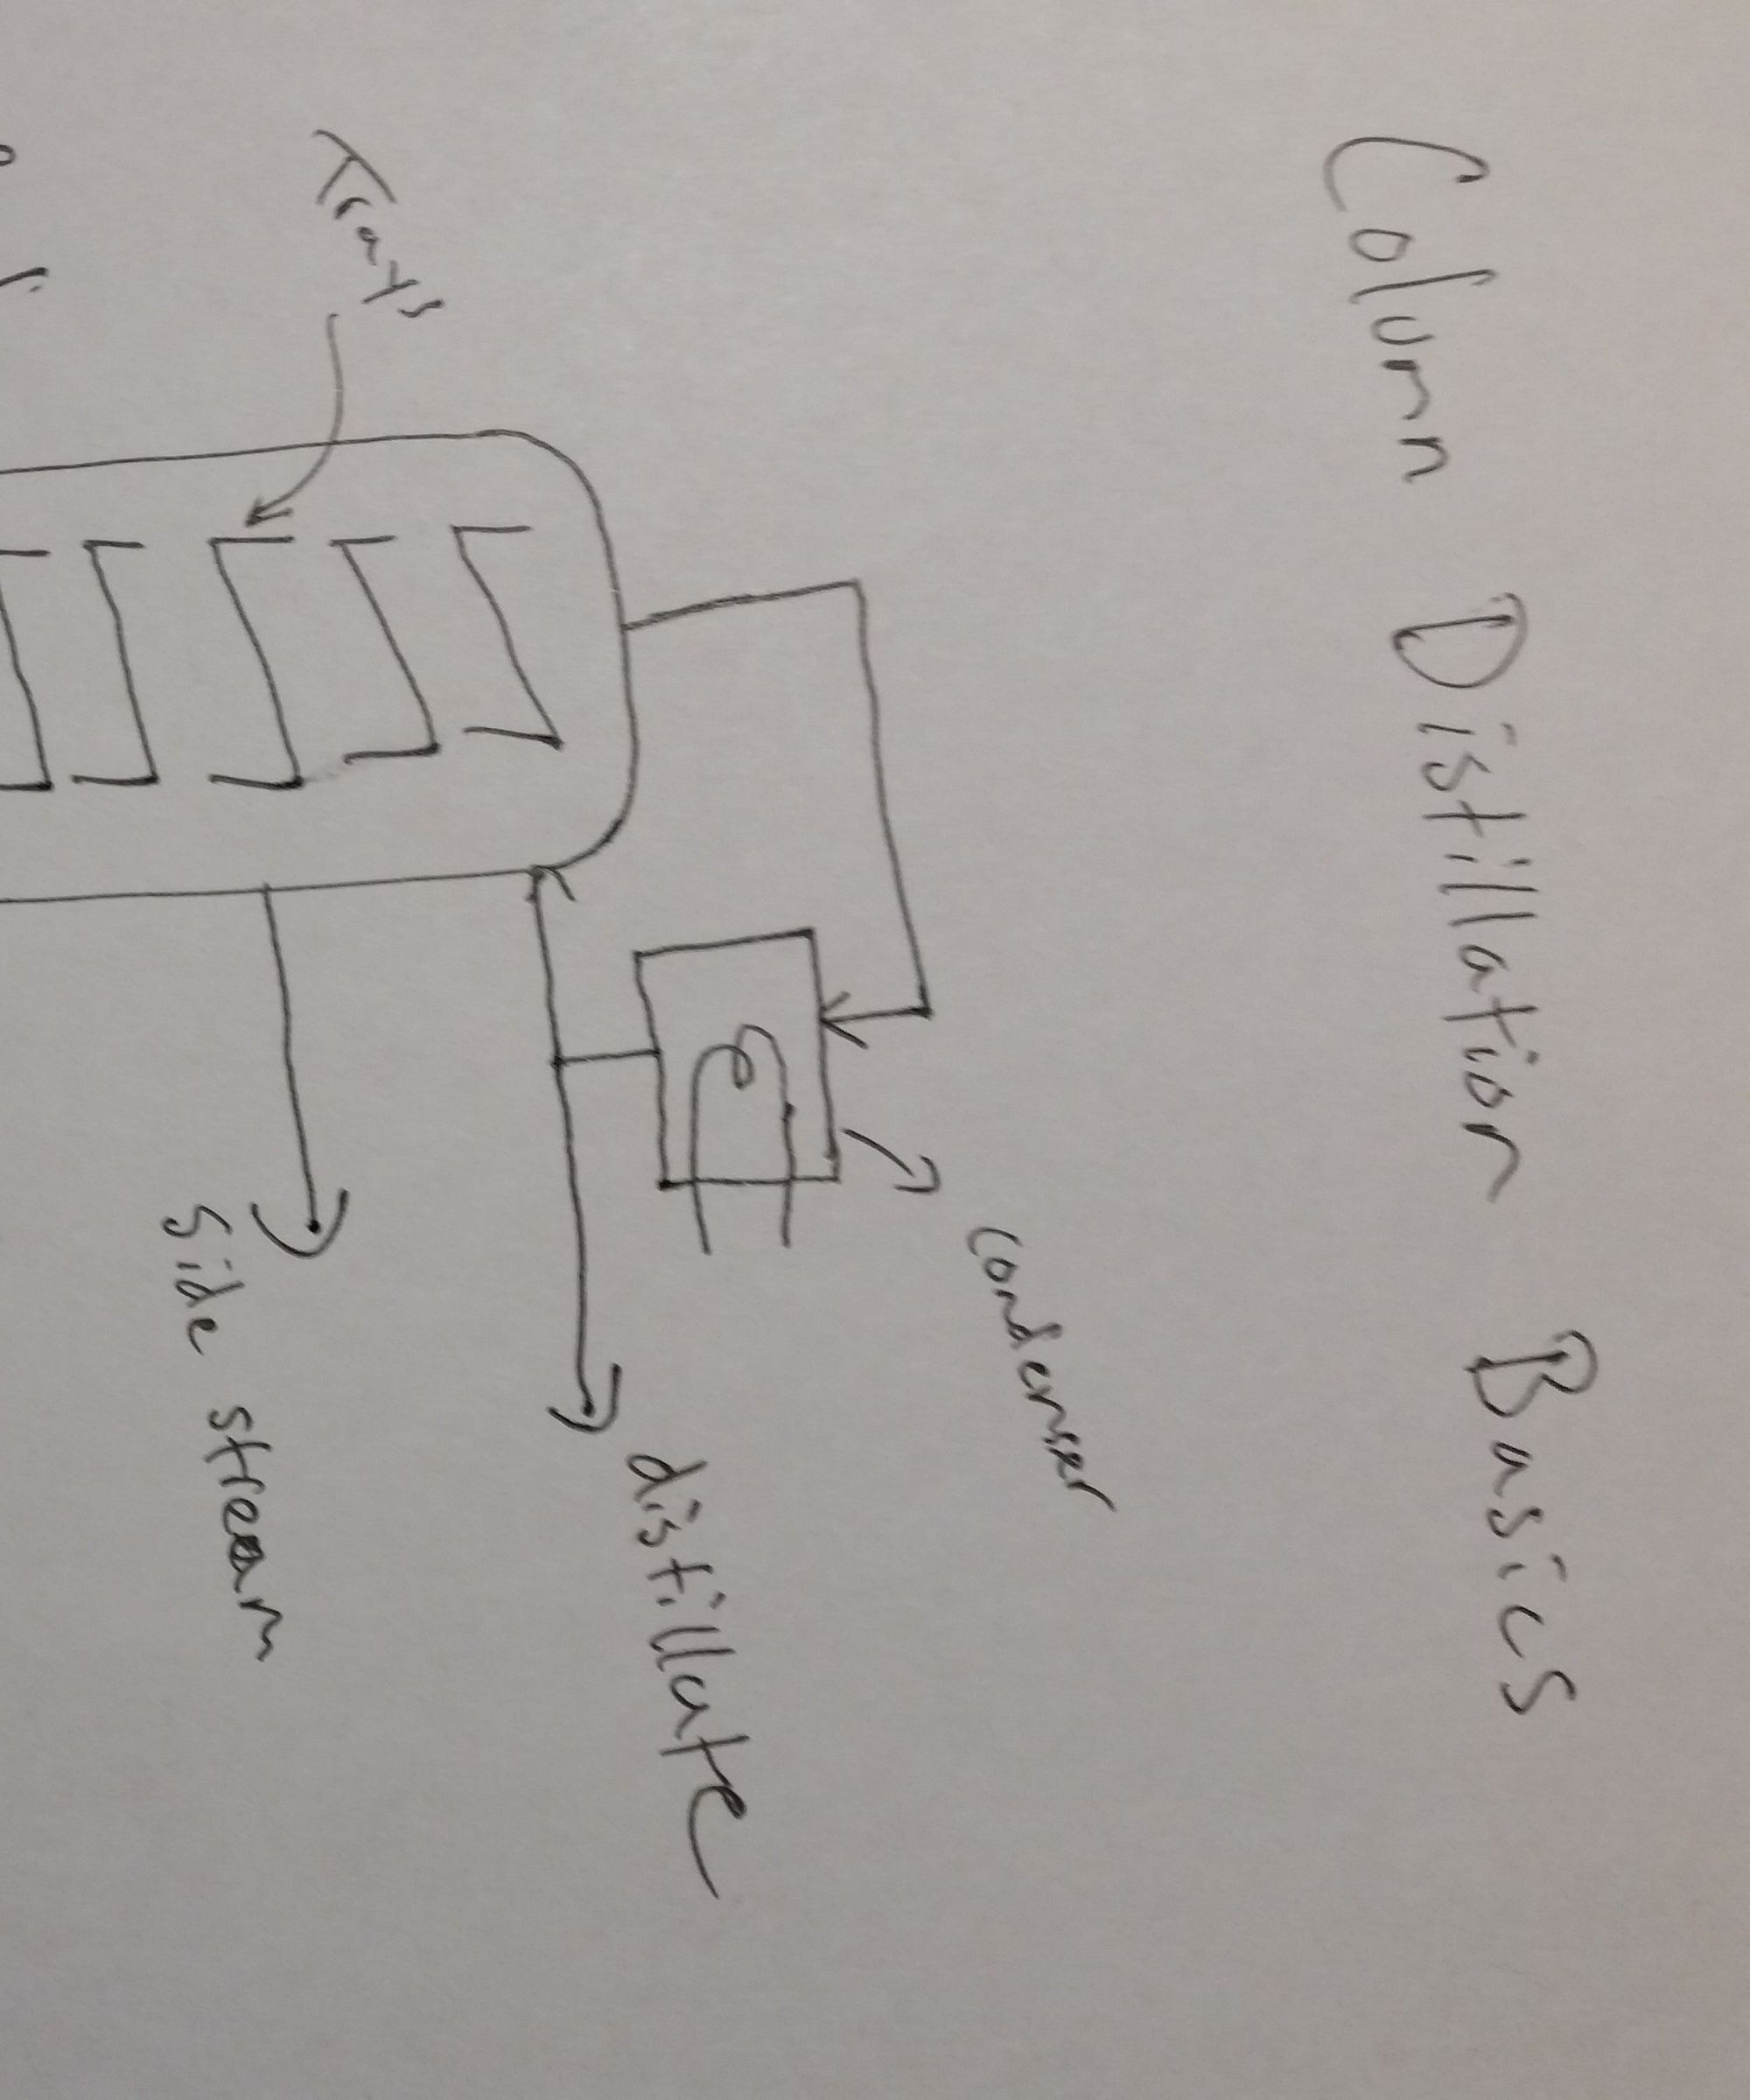 Column Distillation Basics
condenser
distillate
Trays
Side stream